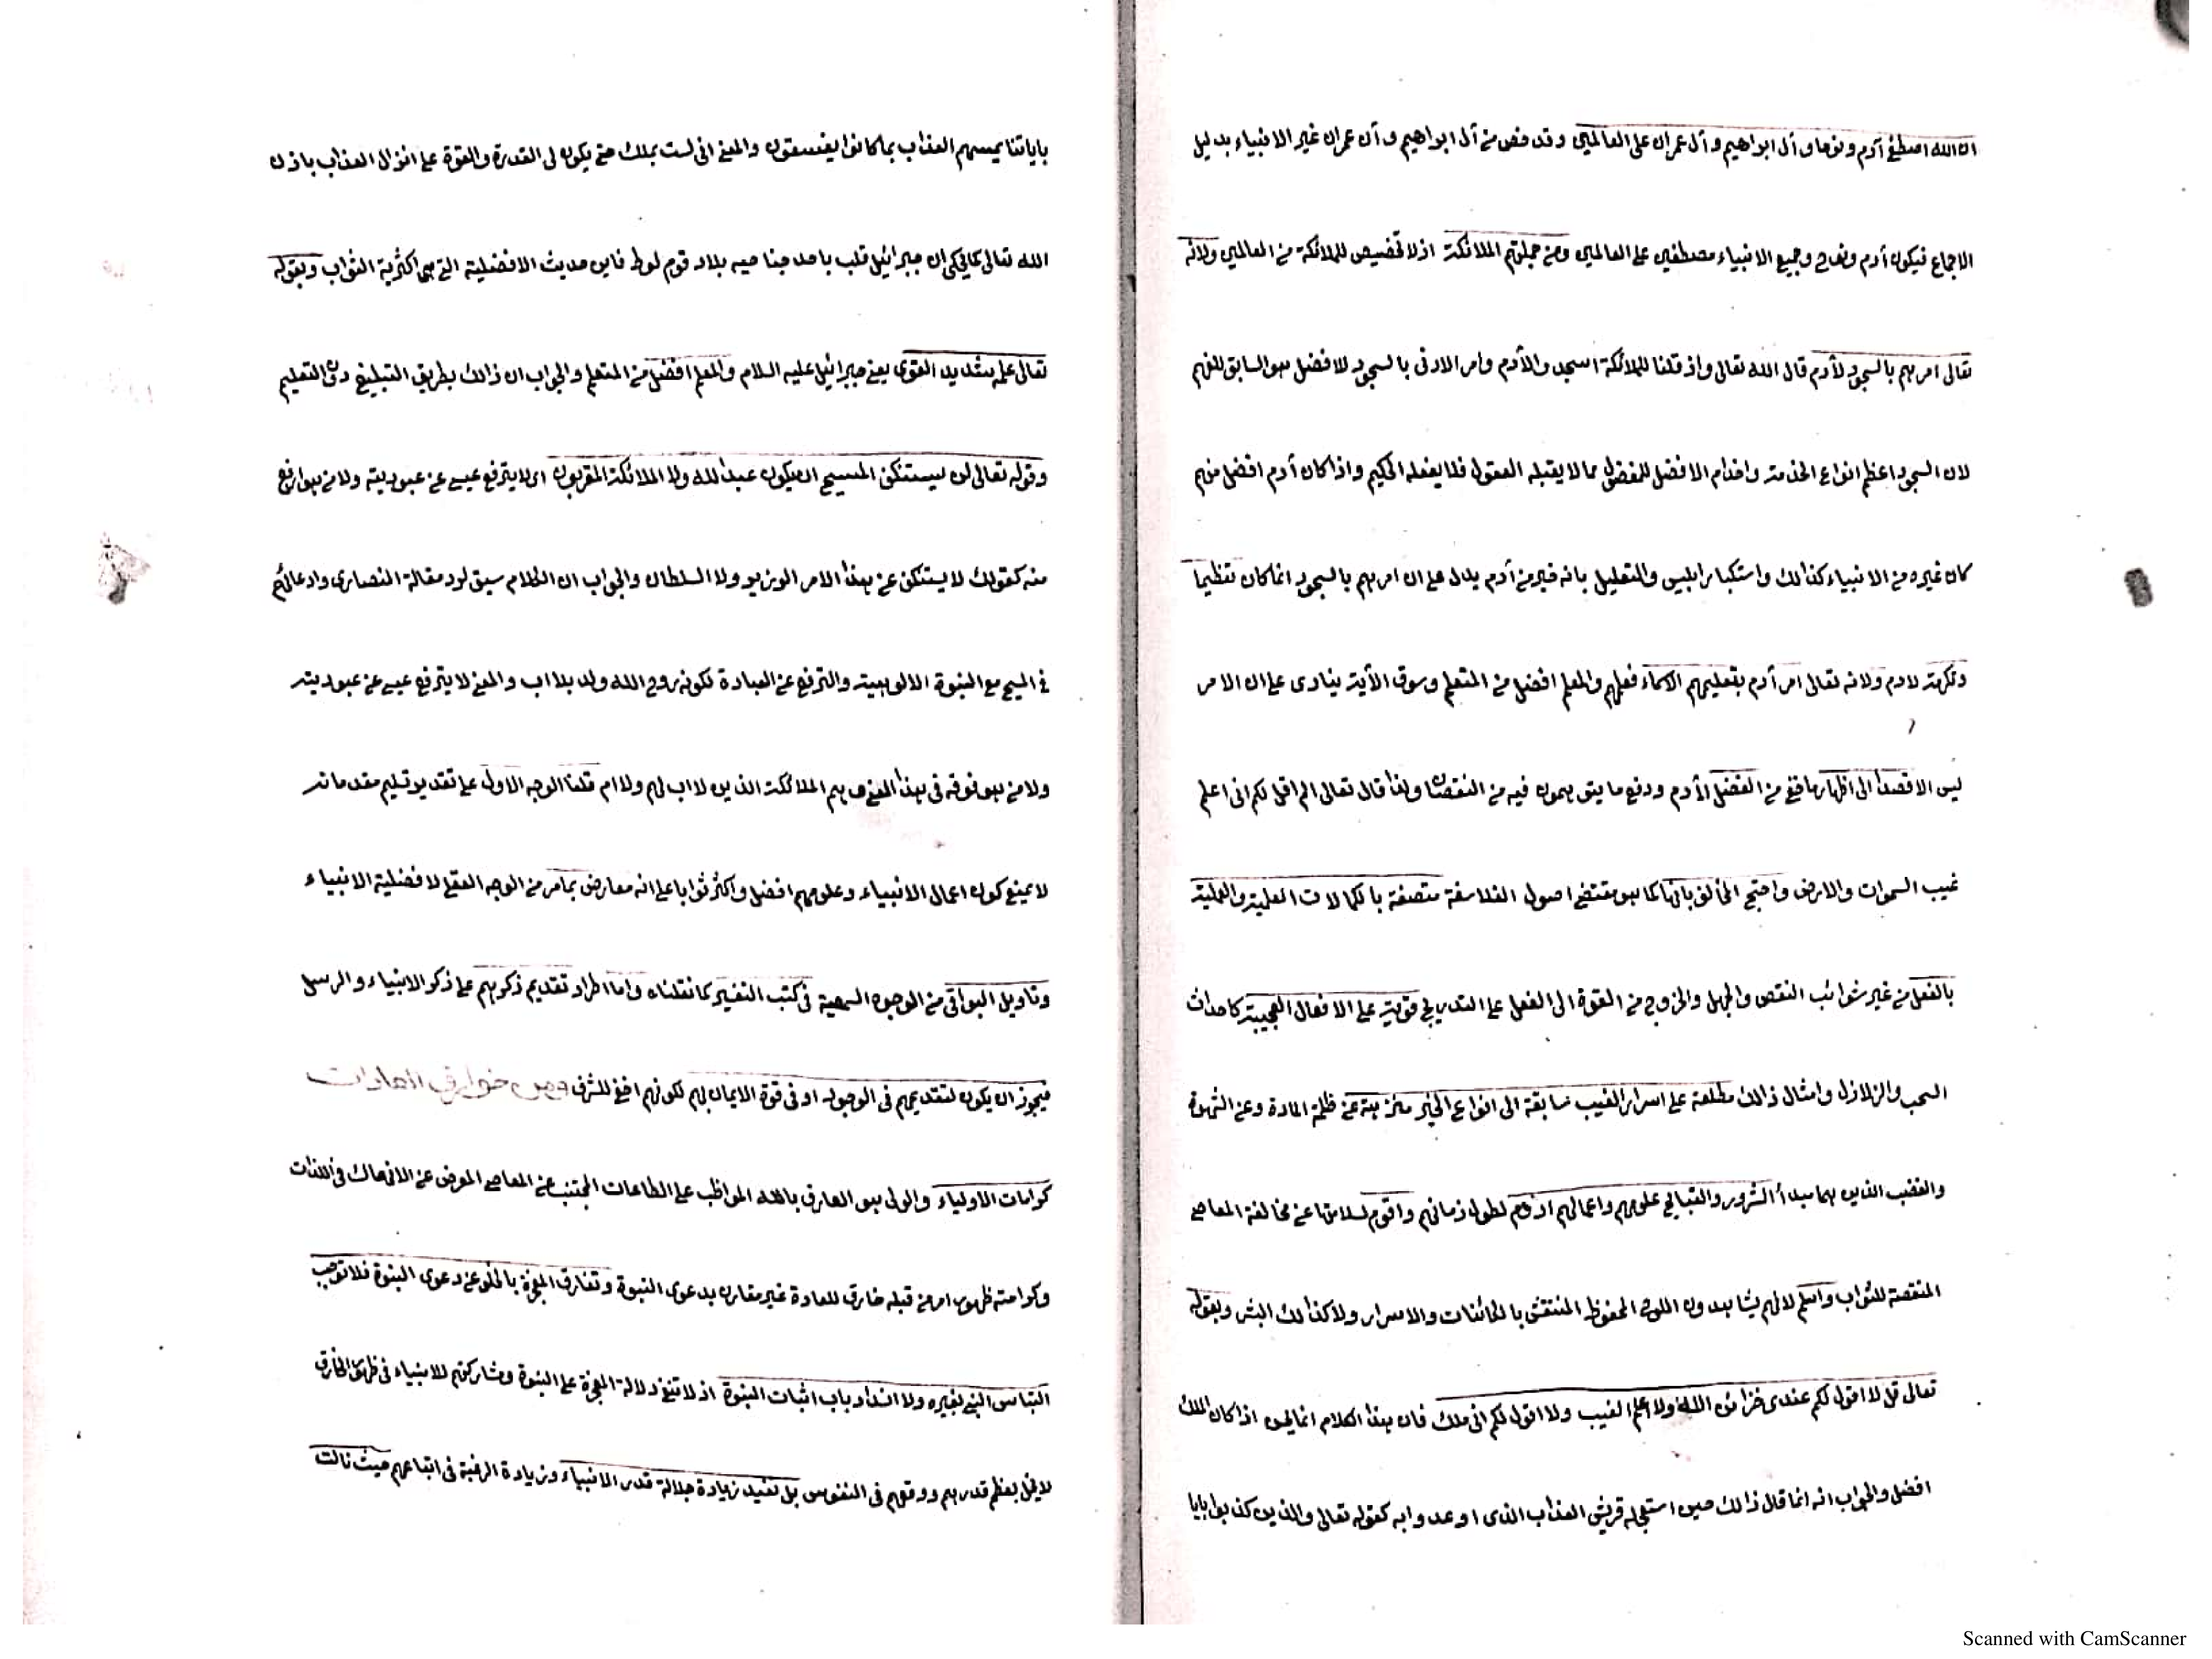 ان الله اصطفى آدم ونوحا وآل ابراهيم وآل عمران على العالمين وقد خص من آل ابراهيم وآل عمران غير الانبياء بدليل
الاجماع فيكون آدم ونوح وجميع الانبياء مصطفين على العالمين ومن جملتهم الملائكة اذ لا تخصيص للملائكة من العالمين ولانه
تعالى امرهم بالسجود لآدم قال الله تعالى واذ قلنا للملائكة اسجدوا لآدم وامر الادنى بالسجود للافضل هو السابق للفهم
لان السجود اعظم انواع الخدمة واخدام الافضل للمفضول مما لا يقبله العقول فلا يفعله الحكيم واذا كان آدم افضل منهم
كان غيره من الانبياء كذالك واستكبار ابليس والتعليل بانه خير من آدم يدل على ان امرهم بالسجود انما كان تعظيما
وتكرمة لادم ولانه تعالى امر آدم بتعليمهم الاسماء فعلمهم والمعلم افضل من المتعلم وسوق الآية ينادى على ان الامر
ليس الا قصدا الى اظهار ما خفى من الفضل لآدم ودفع ما يتوهمون فيه من النقصان ولذا قال تعالى الم اقل لكم انى اعلم
غيب السموات والارض واحتج المخالف بانها كما هو مقتضى اصول الفلاسفة متصفة بالكمالات العلمية والعملية
بالفعل من غير شوائب النقص والجهل والخروج من القوة الى الفعل على التدريج قوية على الافعال العجيبة كاحداث
السحب والزلازل وامثال ذالك مطلعة على اسرار الغيب سابقة الى انواع الخير منزهة عن ظلمة المادة وعن الشهوة
والغضب الذين هما مبدأ الشرور والقبايح علومهم واعمالهم ادوم لطول زمانهم واقوم لسلامتها عن مخالفة المعاصى
المنقصة للثواب واسلم لانهم يشاهدون اللوح المحفوظ المنتقش بالكائنات والاسرار ولا كذالك البشر وبقوله
تعالى قل لا اقول لكم عندى خزائن الله ولا اعلم الغيب ولا اقول لكم انى ملك فان هذا الكلام انما يحسن اذا كان الملك
افضل والجواب انه انما قال ذالك حين استعجله قريش العذاب الذى اوعدوا به كقوله تعالى والذين كذبوا بايا
باياتنا يمسهم العذاب بما كانوا يفسقون والمعنى انى لست بملك حتى يكون لى القدرة والقوة على انزال العذاب باذن
الله تعالى كما يحكى ان جبرائيل قلب باحد جناحيه بلاد قوم لوط فاين حديث الافضلية التى هى اكثرية الثواب وبقوله
تعالى علمه شديد القوى يعنى جبرائيل عليه السلام والمعلم افضل من المتعلم والجواب ان ذالك بطريق التبليغ دون التعليم
وقوله تعالى لن يستنكف المسيح ان يكون عبدا لله ولا الملائكة المقربون اى لا يترفع عيسى عن عبوديته ولا من هو ارفع
منه كقولك لا يستنكف عن هذا الامر الوزير ولا السلطان والجواب ان الكلام سيق لرد مقالة النصارى وادعائهم
فى المسيح مع النبوة الالوهية والترفع عن العبادة لكونه روح الله ولد بلا اب والمعنى لا يترفع عيسى عن عبوديته
ولا من هو فوقه فى هذا المعنى وهم الملائكة الذين لا اب لهم ولا ام قلنا الوجه الاول على تقدير تسليم مقدماته
لا يمنع كون اعمال الانبياء وعلومهم افضل واكثر ثوابا على انه معارض بما مر من الوجه العقلى لافضلية الانبياء
وتاويل البواقى من الوجوه السمعية فى كتب التفسير كما نقلناه واما اطراد تقديم ذكرهم على ذكر الانبياء والرسل
فيجوز ان يكون لتقديمهم فى الوجود او فى قوة الايمان بهم لكونهم اخفى للشرف ومن خوارق العادات
كرامات الاولياء والولى هو العارف بالله المواظب على الطاعات المجتنب عن المعاصى المعرض عن الانهماك فى اللذات
وكرامته ظهور امر من قبله خارق للعادة غير مقارن بدعوى النبوة وتفارق المعجزة بالخلو عن دعوى النبوة فلا توجب
التباس النبى بغيره ولا انسداد باب اثبات النبوة اذ لا تنفى دلالة المعجزة على النبوة ومشاركتهم للانبياء فى ظهور الخارق
لا يخل بعظم قدرهم ووقعهم فى النفوس بل تفيد زيادة جلالة قدر الانبياء وزيادة الرغبة فى اتباعهم حيث نالت
Scanned with CamScanner